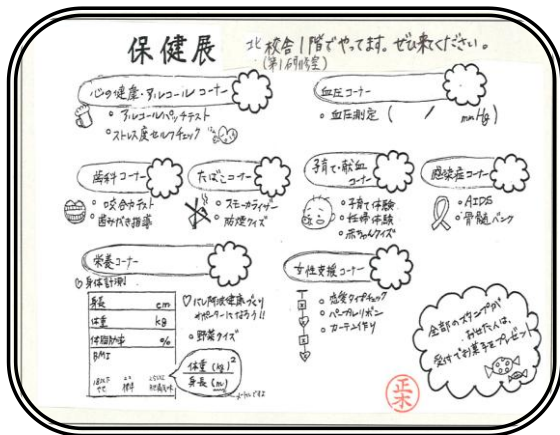 保健展
北校舎1階でやってます。ぜひ来てください。
(第1研修室)
心の健康・アルコール コーナー
。アルコールパッチテスト
。ストレス度セルフチェック
血圧コーナー
。血圧測定 ( / mmHg)
歯科コーナー
。咬合力テスト
。歯みがき指導
たばこコーナー
。スモーカライザー
。防煙クイズ
子育て・献血
コーナー
。子育て体験
。妊婦体験
。赤ちゃんクイズ
感染症コーナー
。AIDS
。骨髄バンク
栄養コーナー
♡身体計測
身長 cm
体重 kg
体脂肪率 %
BMI
体重 (kg)
身長 (m)
2
♡にし阿波健康づくり
サポーターになろう!!
。野菜クイズ
女性支援コーナー
。恋愛タイプチェック
。パープルリボン
。カーテン作り
全部のスタンプが
おせた人は、
受付でお菓子をプレゼント
正木